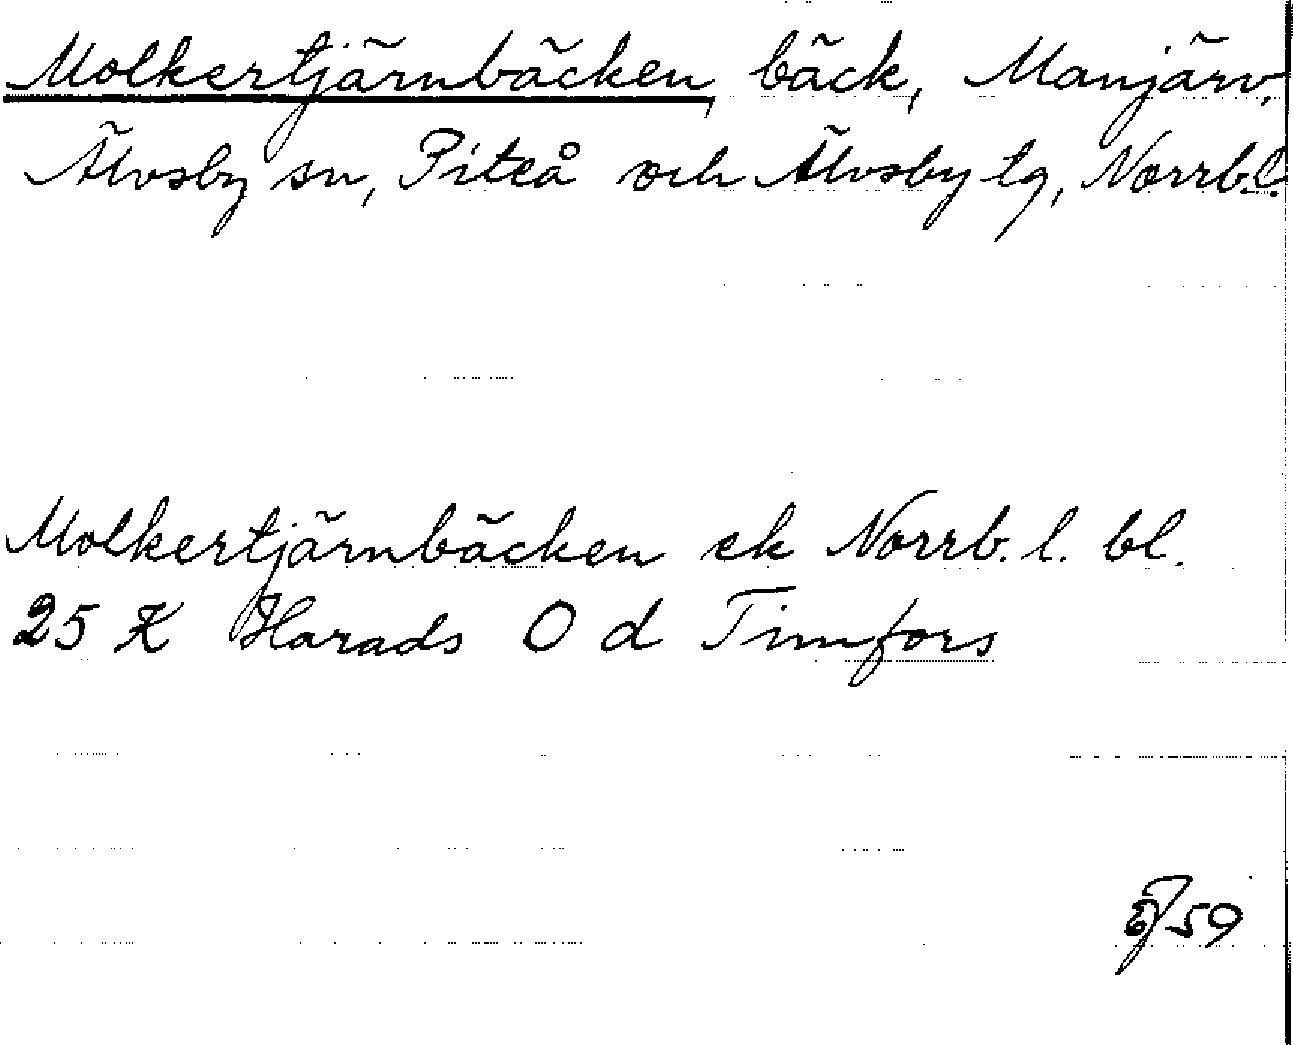 Molkertjärnbäcken, bäck, Manjärv,
Älvsby sn, Piteå och Älvsby tg, Norrb.l.
Molkertjärnbäcken ek Norrb. l. bl.
25 K Harads O d Timfors
59